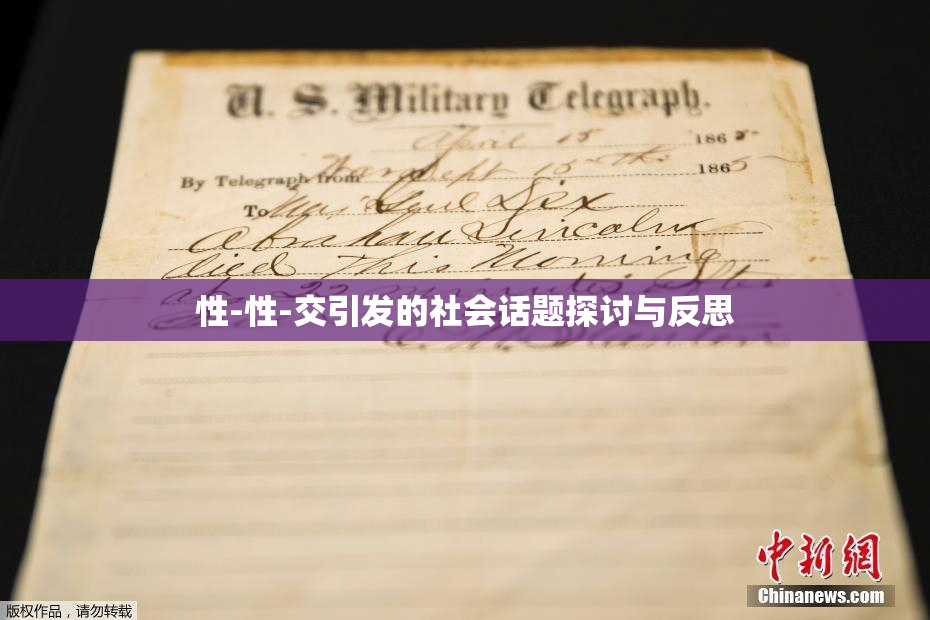 U. S. Military Telegraph.
April 15 1865
By Telegraph from War Dept 15th 1865
To Maj Genl Dix
Abraham Lincoln
died This Morning
at 22 minutes after
性-性-交引发的社会话题探讨与反思
E. M. Stanton
中新网
Chinanews.com
版权作品，请勿转载